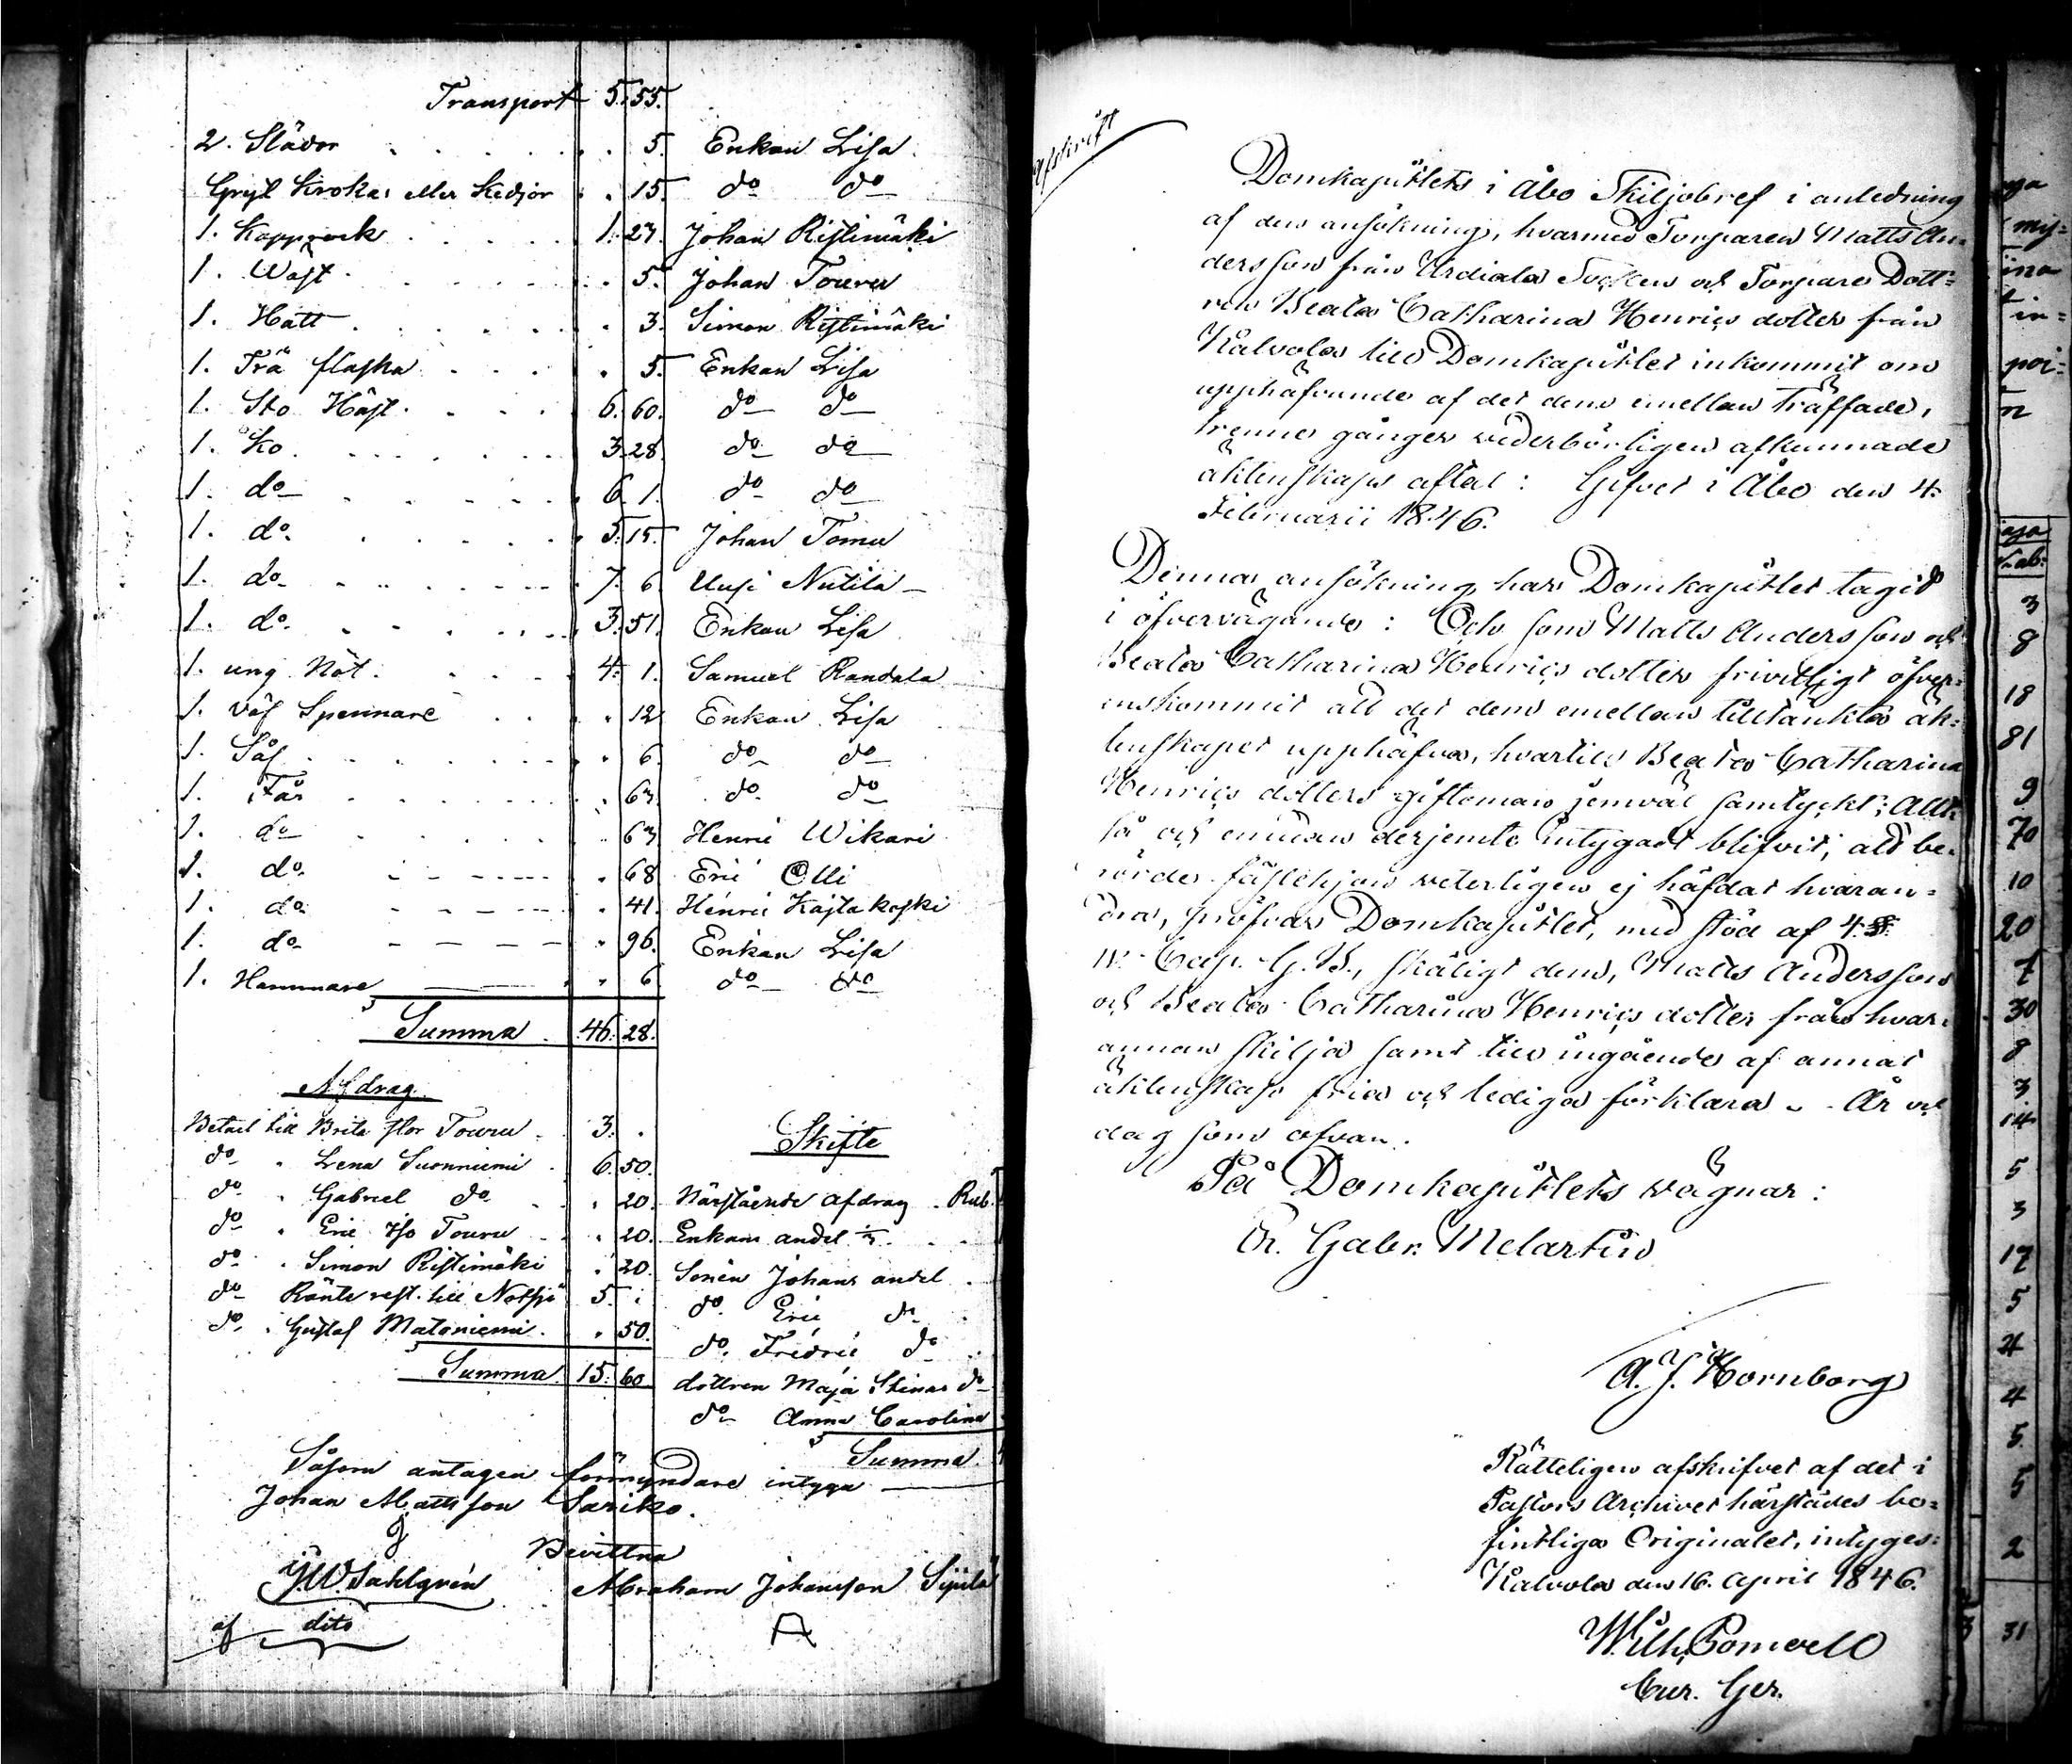 Transport 5. 55.
2. Slädor . . . . . 5. Enkan Lisa
Gryt Krokar eller Kedjor . 15. do do
1. Kapprock . . . 1. 27. Johan Ristimäki
1. Wäst . . . . 5. Johan Touru
1. Hatt . . . . 3. Simon Ristimäki
1. Trä flaska . . . 5. Enkan Lisa
1. Sto Häst . . . 6. 60. do do
1. Ko . . . . 3. 28. do do
1. do . . . . 6. 1. do do
1. do . . . . 5. 15. Johan Tomu
1. do . . . . 7. 6. Uusi Nutila
1. do . . . . 3. 51. Enkan Lisa
1. ung Nöt . . . 4. 1. Samuel Randala
1. Väf Spennare . . . 12 Enkan Lisa
1. Såf . . . . 6. do do
1. Får . . . . 63. do do
1. do . . . . 63 Henric Wikari
1. do . . . . 68 Eric Olli
1. do . . . . 41. Henric Kajtakoski
1. do . . . . 96. Enkan Lisa
1. Hammare . . 6 do do
Summa . 46. 28.
Afdrag
Betalt till Brita flor Touru . 3. .
do . Lena Suonniemi . 6. 50.
do . Gabriel do . . 20.
do . Eric Iso Touru . . 20.
do . Simon Ristimäki . 20.
do Ränte rest. till Notsjö 5. .
do . Gustaf Mataniemi . . 50.
Summa 15. 60
Skifte
Närstående afdrag . Rub.
Enkans andel . .
Sonen Johans andel .
do. Eric do .
do. Fredric do .
dottren Maja Stinas do
do Anna Carolina
Summa
Såsom antagen förmyndare intyga
Johan Mattsson Sariko.
Bevittna
J W. Sahlgrén Abraham Johansson Sipilä
af dito A
Afskrift
Domkapitlets i Åbo Skiljobref i anledning
af den ansökning, hvarmed Torparen Matts An-
dersson från Urdiala Socken och Torpare Dott-
ren Beata Catharina Henrics dotter från
Kalvola till Domkapitlet inkommit om
upphäfvande af det dem emellan träffade,
trenne gånger vederbörligen afkunnade
äktenskaps aftal: Gifvet i Åbo den 4.
Februarii 1846.
Denna ansökning har Domkapitlet tagit
i öfvervägande: Och som Matts Andersson och
Beata Catharina Henrics dotter frivilligt öfver-
enskommit att det dem emellan tilltänkta äk-
tenskapet upphäfva, hvartill Beata Catharina
Henrics dotters giftoman jemväl samtyckt; Allt-
så och emedan derjemte intygadt blifvit, att be-
rörde fästehjon veterligen ej häfdat hvaran-
dra, pröfvar Domkapitlet, med stöd af 4. §.
IV. Cap. G. B., skäligt dem, Matts Andersson
och Beata Catharina Henrics dotter från hvar-
annan skilja samt till ingående af annat
äktenskap fria och lediga förklara. År och
dag som ofvan.
På Domkapitlets vägnar:
Er. Gabr. Melartin
A. J. Hornborg
Rätteligen afskrifvet af det i
Pastors Archivet härstädes be-
fintliga Originalet, intygas:
Kalvola den 16. April 1846.
Wilh. Pomoell
Cur. Ger.
my-
in-
poi-
n
Kab.
3
8
18
81
9
70
10
20
7
30
8
3
14
5
3
17
5
4
4
5.
5
2
31